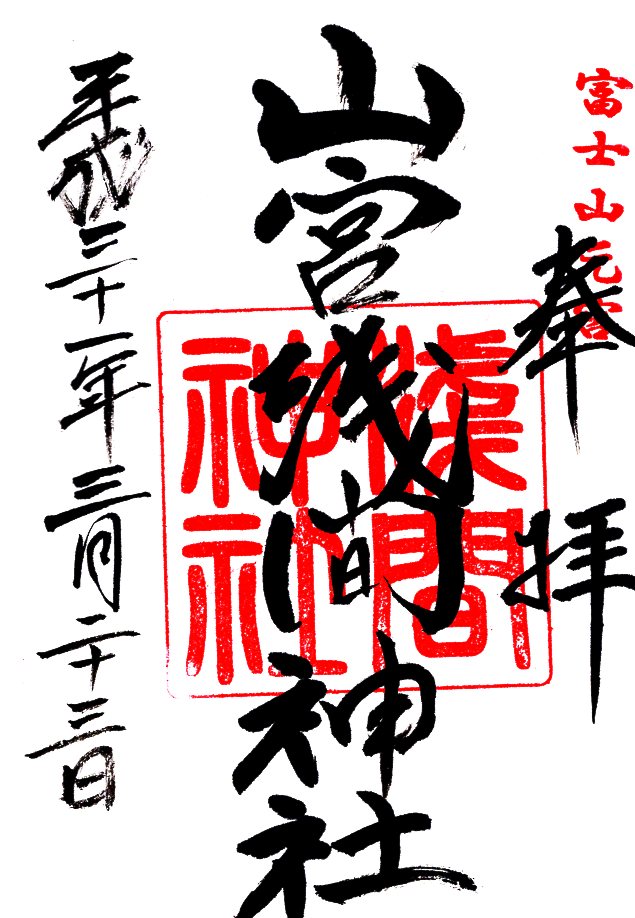 富士山元宮
奉拝
山宮浅間神社
淺間神社
平成三十一年三月二十三日